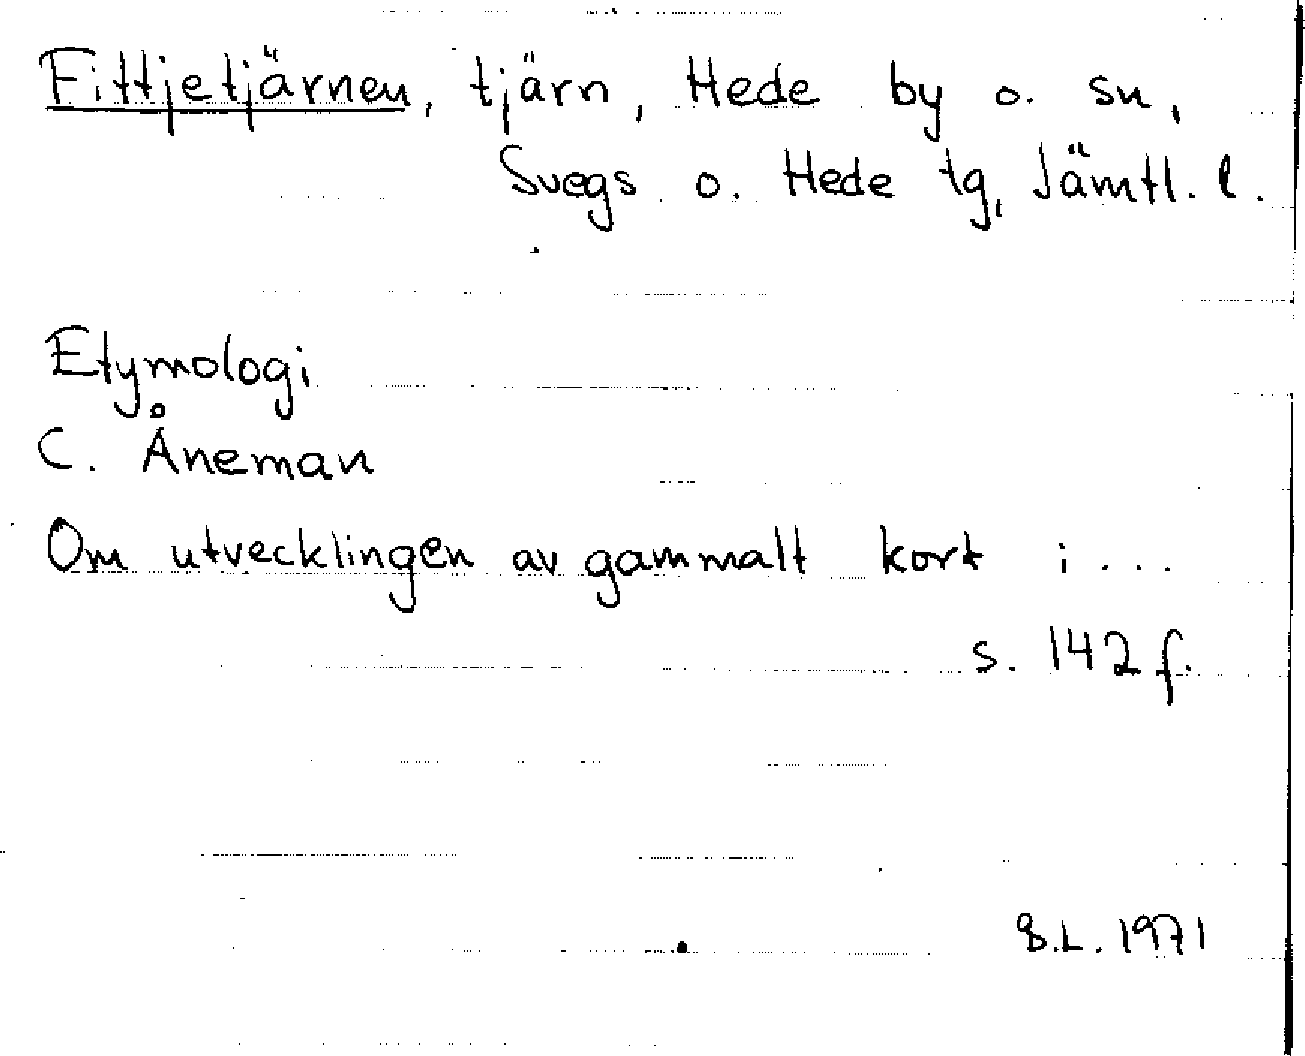 Fittjetjärnen, tjärn, Hede by o. sn,
Svegs o. Hede tg, Jämtl. l.
Etymologi
C. Åneman
Om utvecklingen av gammalt kort i...
s. 142 f.
B.L. 1971